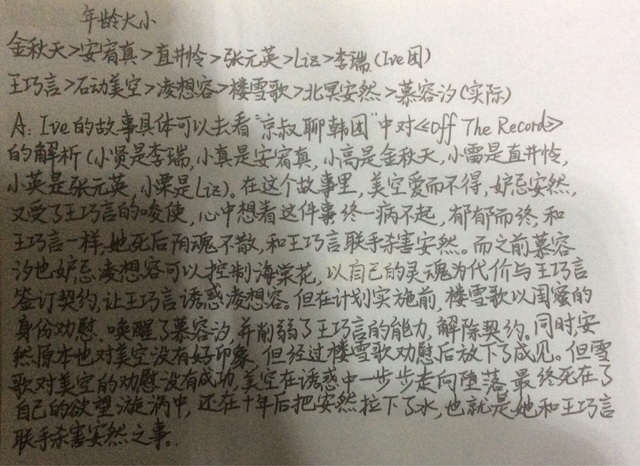 年龄大小
金秋天>安宥真>直井怜>张元英>Liz>李瑞(Ive团)
王巧言>石动美空>凌想容>楼雪歌>北冥安然>慕容汐(实际)
A: Ive的故事具体可以去看"京叔聊韩团"中对≪Off The Record≫
的解析(小贤是李瑞,小真是安宥真,小高是金秋天,小雷是直井怜,
小英是张元英,小栗是Liz)。在这个故事里,美空爱而不得,妒忌安然,
又受了王巧言的唆使,心中想着这件事终一病不起,郁郁而终,和
王巧言一样,她死后阴魂不散,和王巧言联手杀害安然。而之前慕容
汐也妒忌凌想容可以控制海棠花,以自己的灵魂为代价与王巧言
签订契约,让王巧言诱惑凌想容。但在计划实施前,楼雪歌以闺蜜的
身份劝慰、唤醒了慕容汐,并削弱了王巧言的能力,解除契约。同时安
然原本也对美空没有好印象,但经过楼雪歌劝慰后放下了成见。但雪
歌对美空的劝慰没有成功,美空在诱惑中一步步走向堕落,最终死在了
自己的欲望漩涡中,还在十年后把安然拉下了水,也就是她和王巧言
联手杀害安然之事。